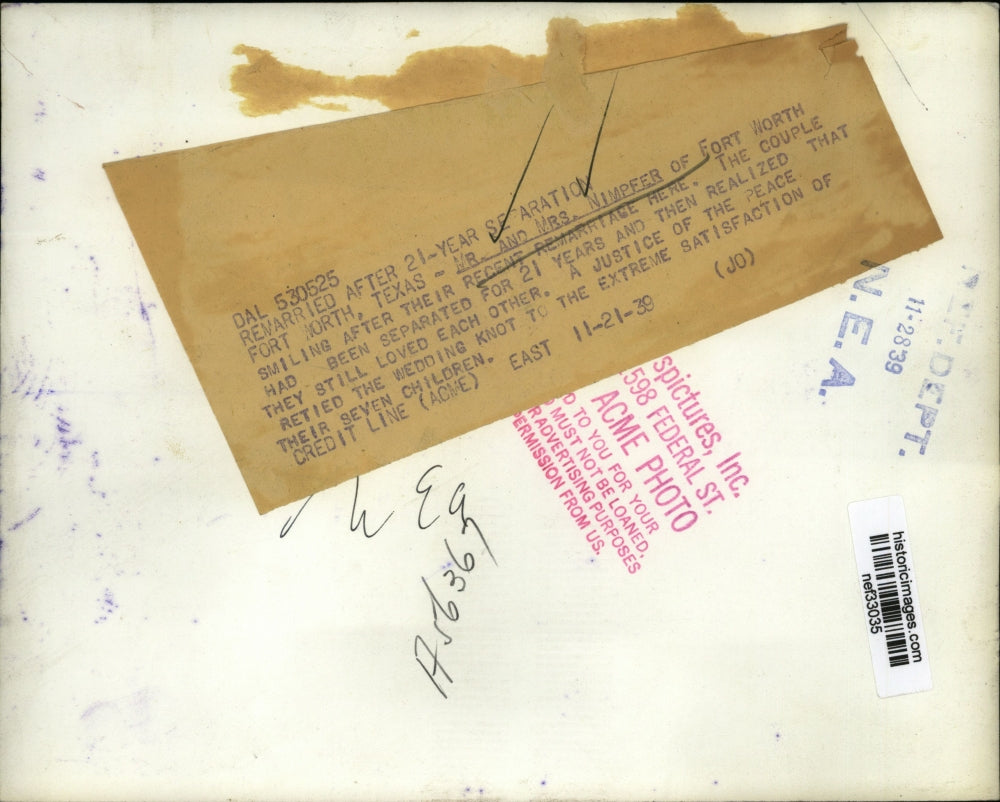 DAL 530525
REMARRIED AFTER 21-YEAR SEPARATION
FORT WORTH, TEXAS - MR. AND MRS. NIMPFER OF FORT WORTH
SMILING AFTER THEIR RECENT REMARRIAGE HERE. THE COUPLE
HAD BEEN SEPARATED FOR 21 YEARS AND THEN REALIZED THAT
THEY STILL LOVED EACH OTHER. A JUSTICE OF THE PEACE
RETIED THE WEDDING KNOT TO THE EXTREME SATISFACTION OF
THEIR SEVEN CHILDREN.
CREDIT LINE (ACME) EAST 11-21-39 (JO)
spictures, Inc.
598 FEDERAL ST.
ACME PHOTO
D TO YOU FOR YOUR
MUST NOT BE LOANED,
R ADVERTISING PURPOSES
ERMISSION FROM US.
N.E.A.
11-28 39
DEPT.
historicimages.com
nef33035